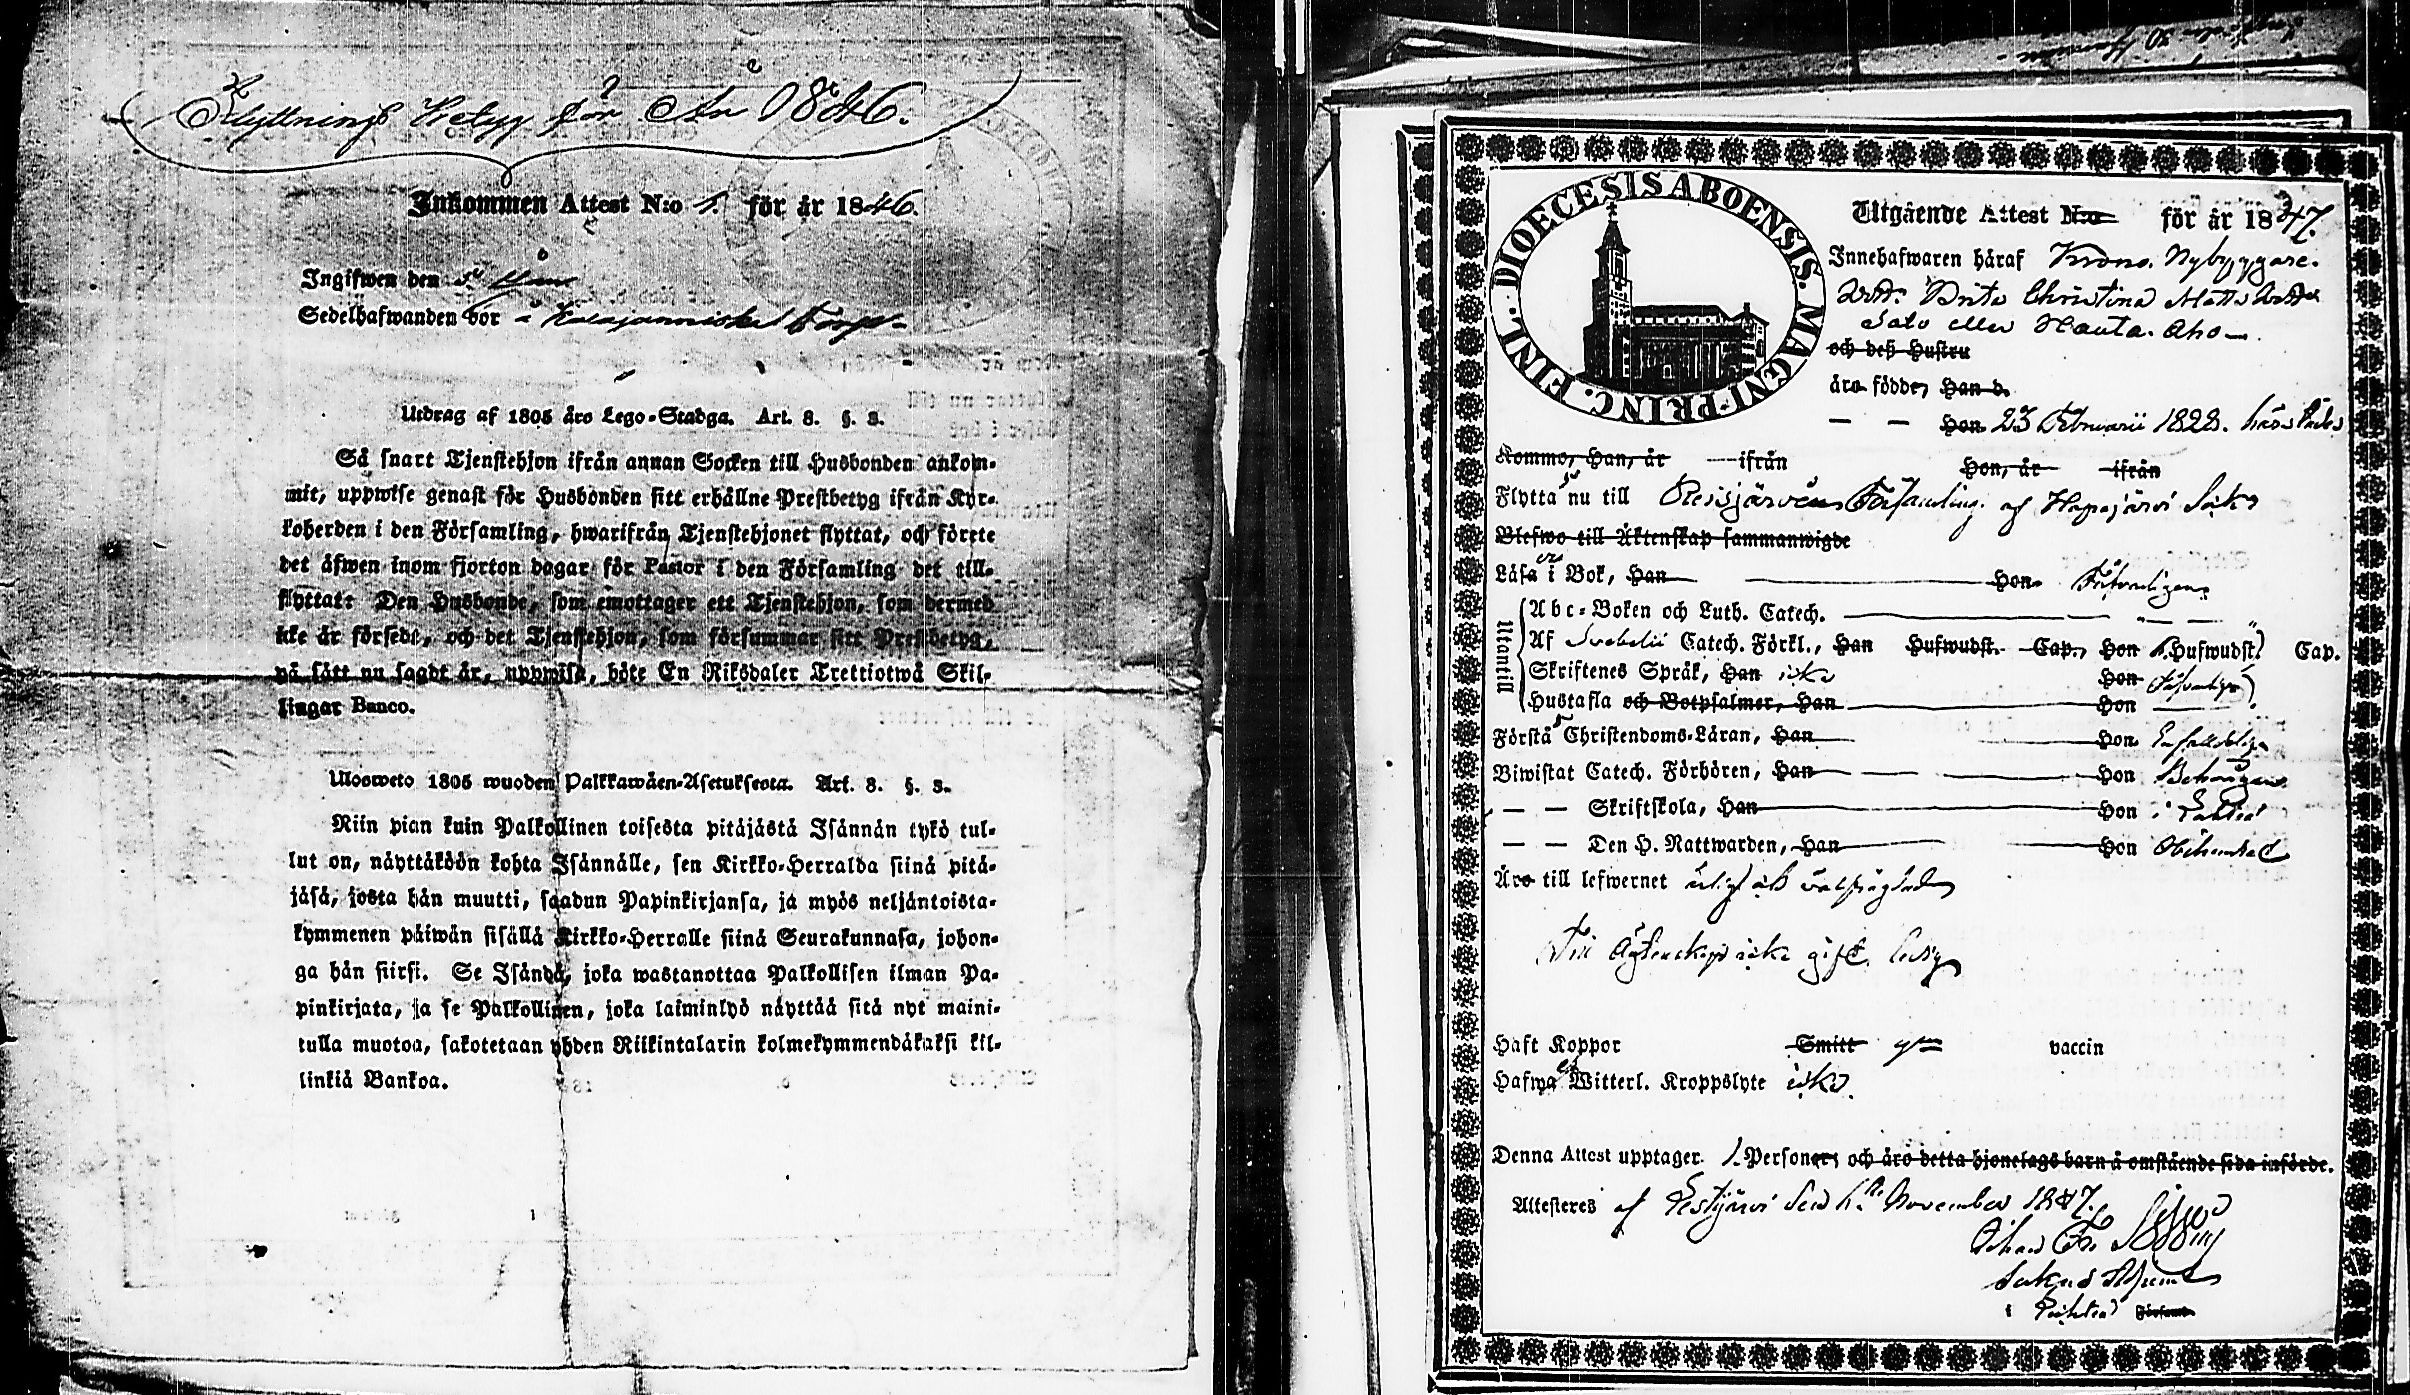 Flyttnings Betyg för År 1846.
Inkommen Attest N:o 1. för år 1846.
Ingifwen den
Sedelhafwanden bor å
Utdrag af 1805 års Lego-Stadga. Art. 8. §. 3.
Så snart Tjenstehjon ifrån annan Socken till Husbonden ankom-
mit, uppwise genast för Husbonden sitt erhållne Prestbetyg ifrån Kyr-
koherden i den Församling, hwarifrån Tjenstehjonet flyttat, och förete
det äfwen inom fjorton dagar för Pastor i den Församling det till-
flyttat: Den Husbonde, som emottager ett Tjenstehjon, som dermed
icke är försedt, och det Tjenstehjon, som försummar sitt Prestbetyg,
på sätt nu sagdt är, uppwisa, böte En Riksdaler Trettiotwå Skil-
lingar Banco.
Ulosweto 1805 wuoden Palkkawäen-Asetuksesta. Art. 8. §. 3.
Niin pian kuin Palkollinen toisesta pitäjästä Isännän tykö tul-
lut on, näyttäköön kohta Isännälle, sen Kirkko-Herralda siinä pitä-
jäsä, josta hän muutti, saadun Papinkirjansa, ja myös neljäntoista-
kymmenen päiwän sisällä Kirkko-Herralle siinä Seurakunnasa, johon-
ga hän siirsi. Se Isändä, joka wastanottaa Palkollisen ilman Pa-
pinkirjata, ja se Palkollinen, joka laiminlyö näyttää sitä nyt maini-
tulla muotoa, sakotetaan yhden Riikintalarin kolmekymmendäkaksi kil-
linkiä Bankoa.
DIOECESIS ABOENSIS. MAGNI-PRINC. FINL.
Utgående Attest N:o för år 1847.
Innehafwaren häraf Krono. Nybyggare.
Brita Christina Matts
Salo eller Hauta-aho
och deß Hustru
äro födde, Han d.
— — Hon 23 Februarii 1822.
Kommo, Han, år ifrån Hon, år ifrån
Flytta nu till Reisjärvi Församling af Hapajärvi Sokn
Blefwo till Äktenskap sammanwigde
Läsa i Bok, Han Hon
Utantill
Abc-Boken och Luth. Catech.
Af Svebelii Catech. Förkl., Han Hufwudst. Cap., Hon Hufwudst. Cap.
Skriftenes Språk, Han Hon
Hustafla och Botpsalmer, Han Hon
Förstå Christendoms-Läran, Han Hon
Biwistat Catech. Förhören, Han Hon
— — Skriftskola, Han Hon i
— — Den H. Nattwarden, Han Hon Obehindrad
Äro till lefwernet ärlig och välfrägdad
Till Äktenskap icke gift. ledig
Haft Koppor Smitt vaccin
Hafwa Witterl. Kroppslyte icke.
Denna Attest upptager 1. Personer, och äro detta hjonelags barn å omstående sida införde.
Attesteres af Pestijärvi den November 1847.
Johan Fr.
i Församl.